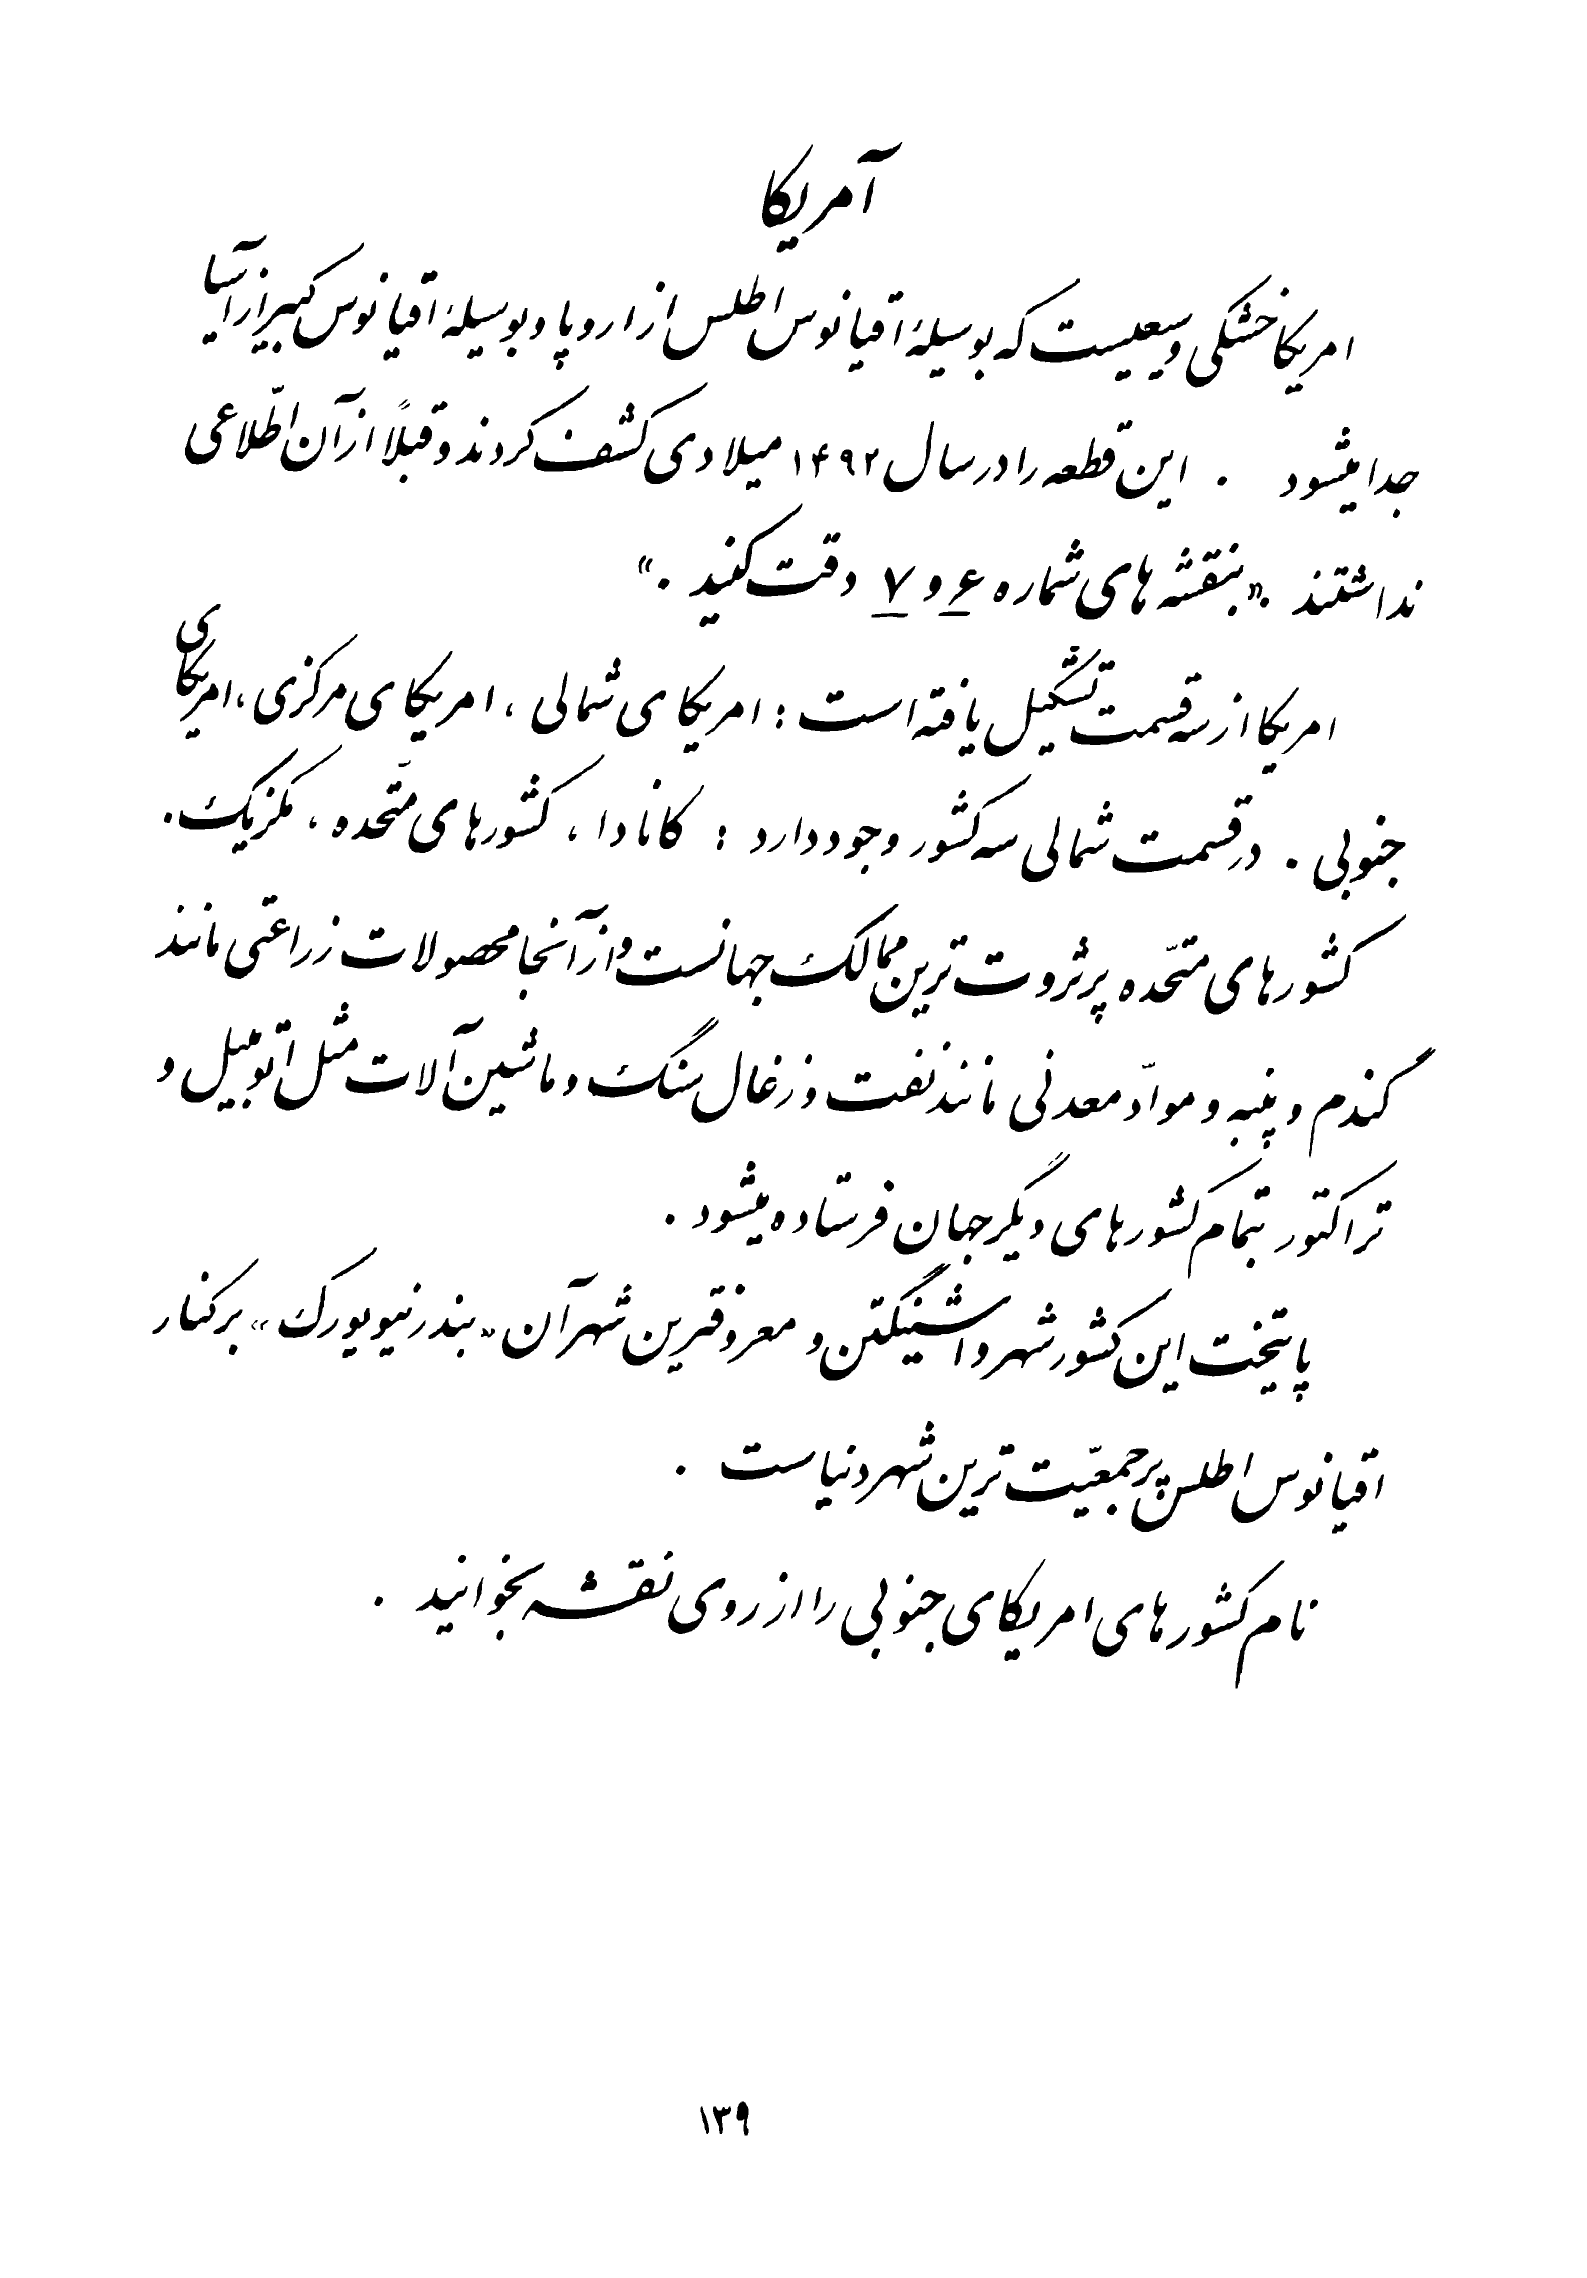 آمریکا
امریکا خشکی وسیعیست که بوسیلهٔ اقیانوس اطلس از اروپا و بوسیلهٔ اقیانوس کبیر از آسیا
جدا میشود . این قطعه را در سال ۱۴۹۲ میلادی کشف کردند و قبلاً از آن اطّلاعی
نداشتند . «بنقشه های شماره ۶ و ۷ دقت کنید .»
امریکا از سه قسمت تشکیل یافته است : امریکای شمالی ، امریکای مرکزی ، امریکای
جنوبی . در قسمت شمالی سه کشور وجود دارد : کانادا ، کشورهای متّحده ، مکزیک .
کشورهای متّحده پر ثروت ترین ممالک جهانست و از آنجا محصولات زراعتی مانند
گندم و پنبه و موادّ معدنی مانند نفت و زغال سنگ و ماشین آلات مثل اتومبیل و
تراکتور بتمام کشورهای دیگر جهان فرستاده میشود .
پایتخت این کشور شهر واشینگتن و معروفترین شهر آن «بندر نیویورک» بر کنار
اقیانوس اطلس پر جمعیّت ترین شهر دنیاست .
نام کشورهای امریکای جنوبی را از روی نقشه بخوانید .
۱۳۹